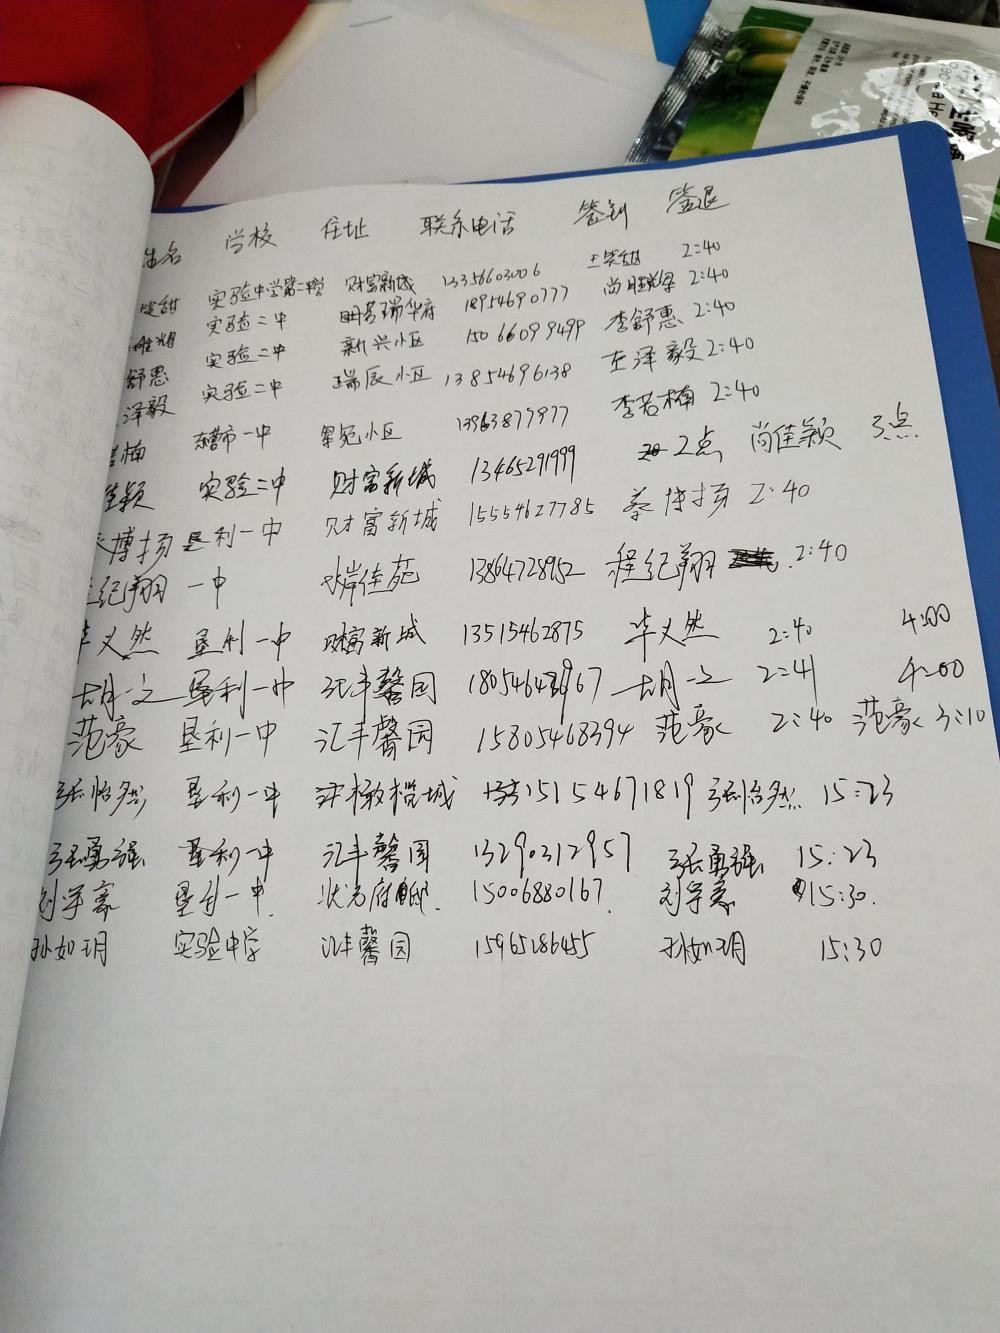 姓名 学校 住址 联系电话 签到 签退
笑甜 实验中学第二中学 财富新城 13356603006 王笑甜 2:40
实验二中 明若瑞华府 18954690777 尚 2:40
舒惠 实验二中 新兴小区 15066099499 李舒惠 2:40
泽毅 实验二中 瑞辰小区 13854696138 左泽毅 2:40
若楠 东营市一中 小区 13963877977 李若楠 2:40
佳颖 实验二中 财富新城 13465291999 2点 尚佳颖 3点
蔡博扬 垦利一中 财富新城 15554627785 蔡博扬 2:40
程纪翔 一中 佳苑 13864728952 程纪翔 2:40
毕义然 垦利一中 财富新城 13515462875 毕义然 2:40 4:00
胡一文 垦利一中 汇丰馨园 胡一文 2:41 4:00
范豪 垦利一中 汇丰馨园 15805468394 范豪 2:40 范豪 3:10
张怡然 垦利一中 橄榄城 15154671819 张怡然 15:23
张勇强 垦利一中 汇丰馨园 13290312957 张勇强 15:23
刘宇豪 垦利一中. 状元府邸. 15006880167. 刘宇豪 15:30.
孙如玥 实验中学 汇丰馨园 15965286455 孙如玥 15:30